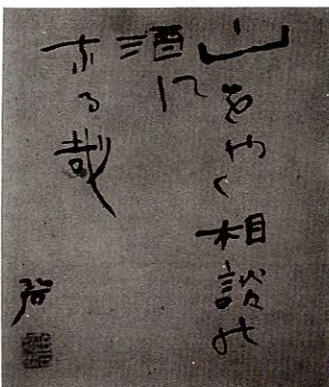 山をやく相談の
酒に
なる哉